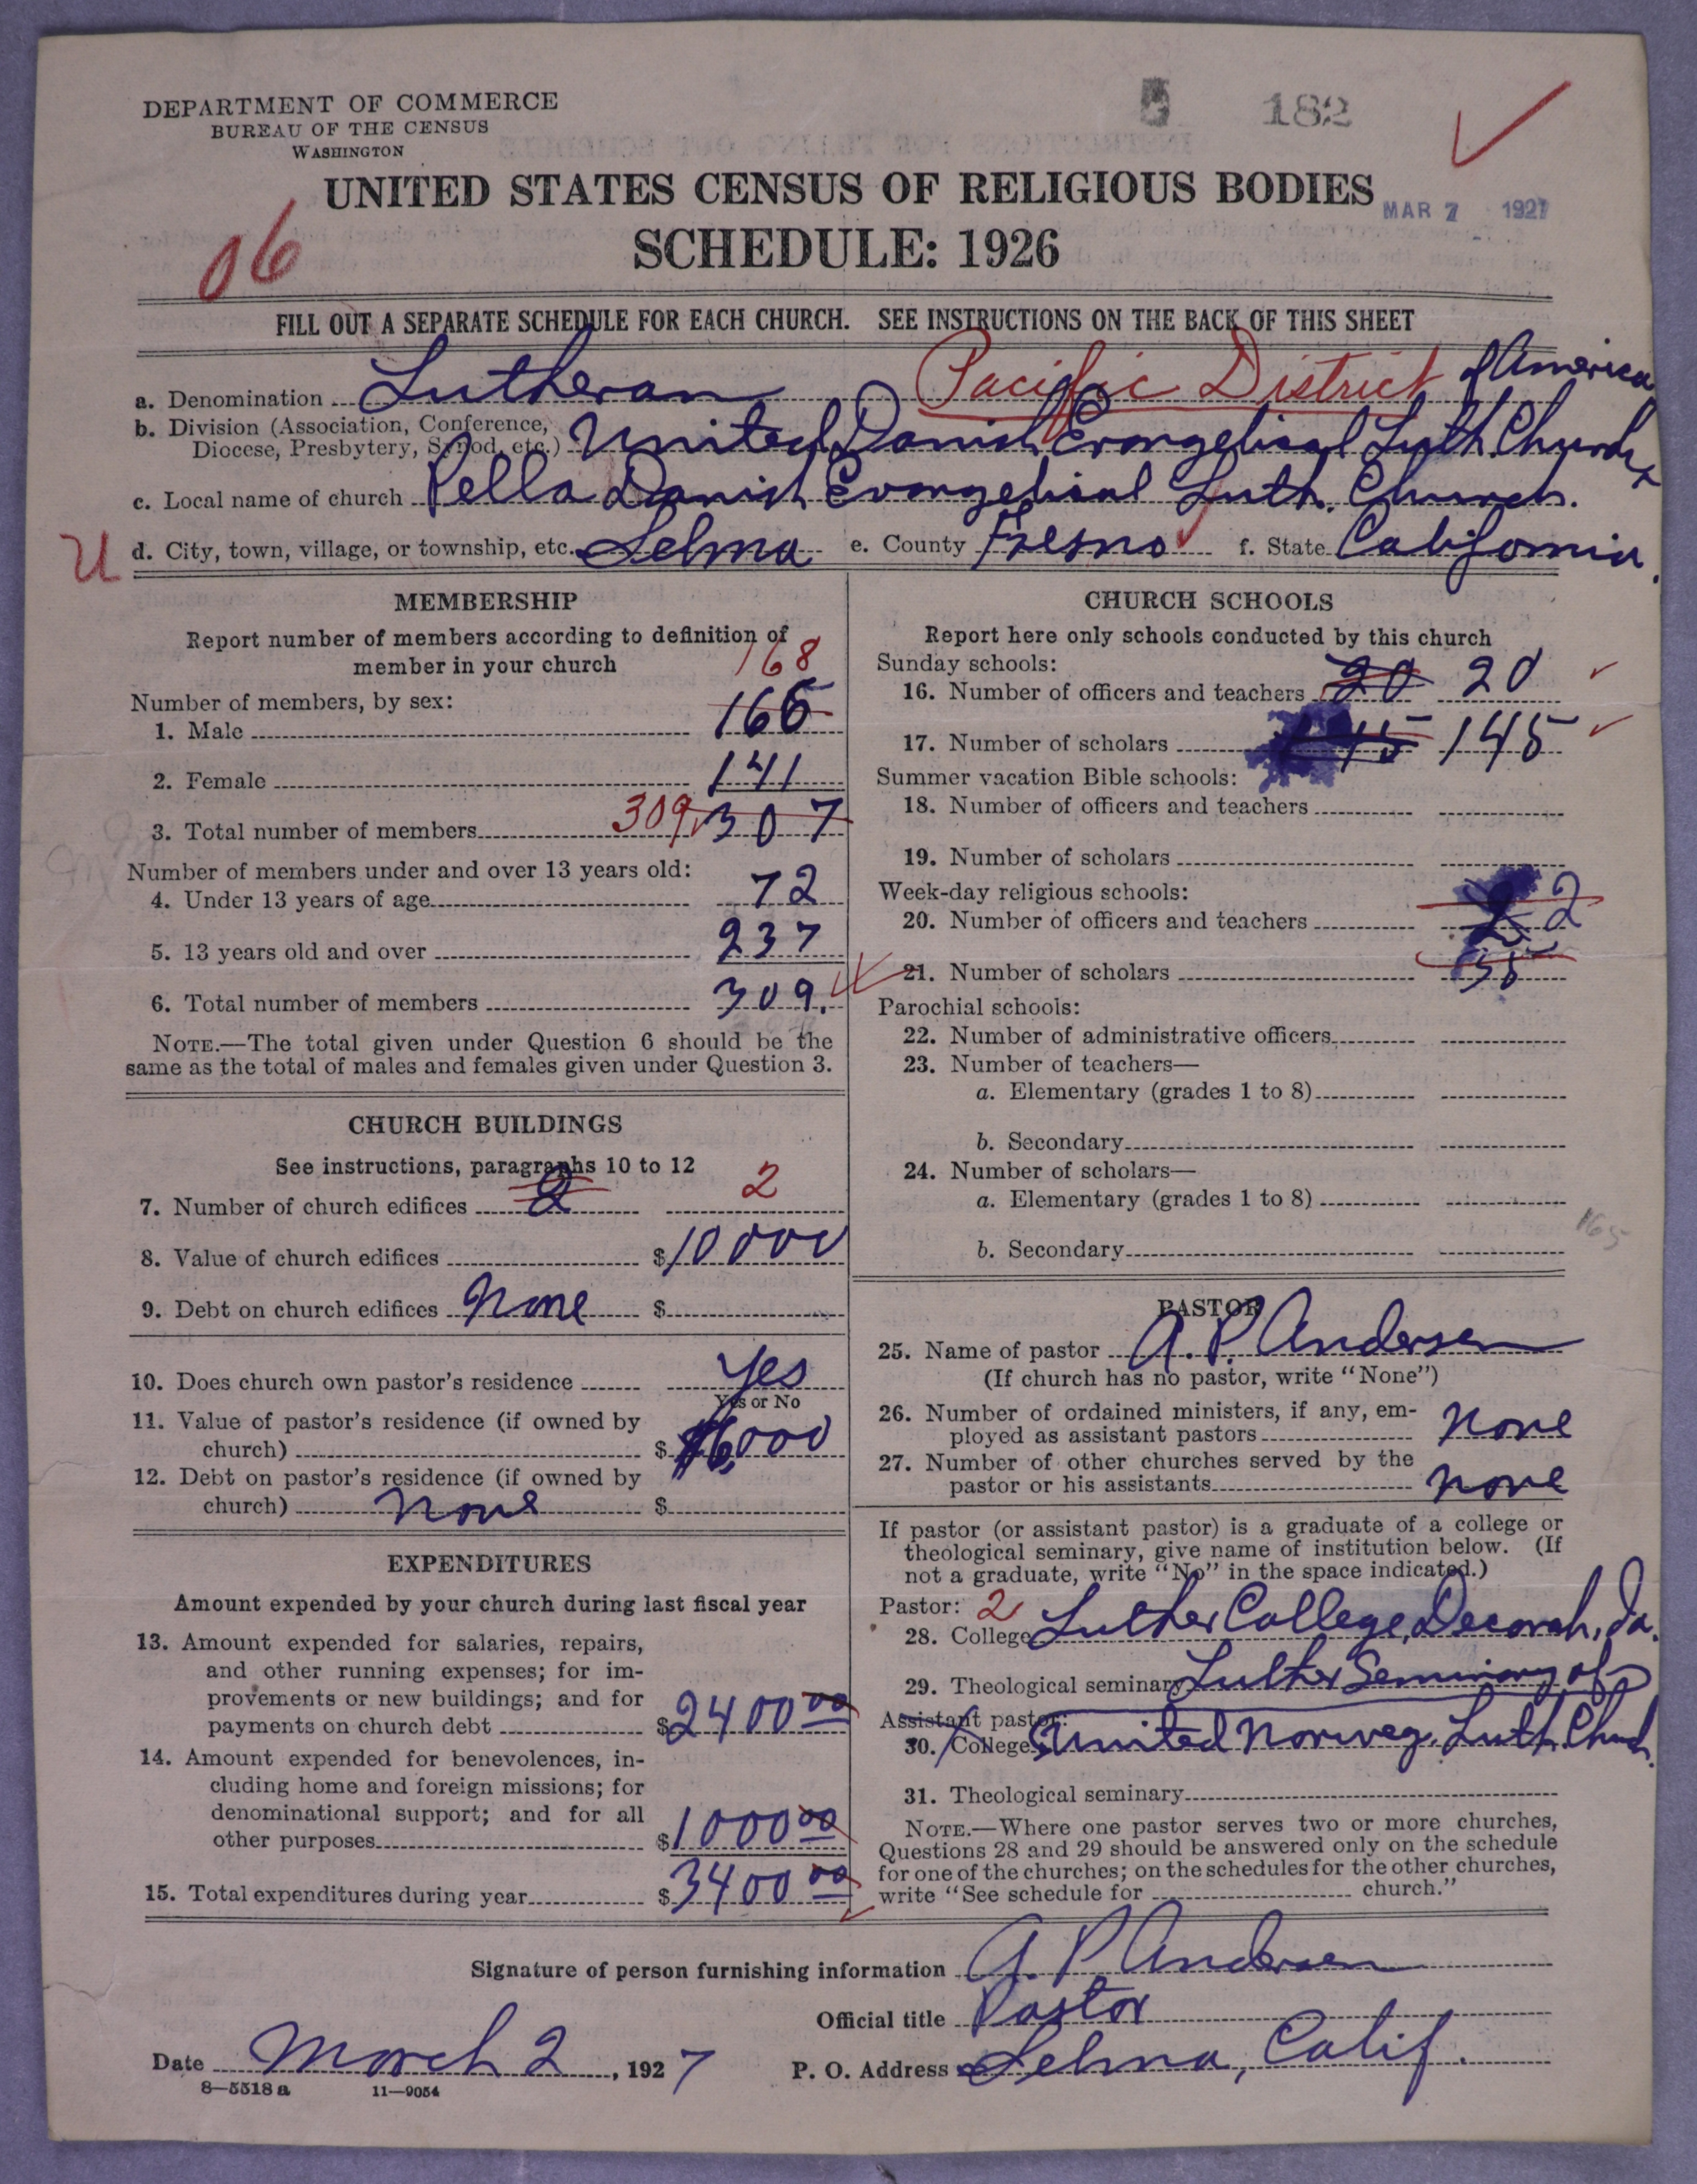 DEPARTMENT OF COMMERCE
BUREAU OF THE CENSUS
WASHINGTON
5 182
UNITED STATES CENSUS OF RELIGIOUS BODIES
MAR 7 1927
SCHEDULE: 1926
06
FILL OUT A SEPARATE SCHEDULE FOR EACH CHURCH. SEE INSTRUCTIONS ON THE BACK OF THIS SHEET
a. Denomination Lutheran Pacific District of America
b. Division (Association, Conference,
Diocese, Presbytery, Synod, etc.) United Danish Evangelical Luth. Church
c. Local name of church Pella Danish Evangelical Luth. Church.
U d. City, town, village, or township, etc. Selma e. County Fresno f. State California.
MEMBERSHIP
Report number of members according to definition of
member in your church
168
Number of members, by sex:
1. Male 166
2. Female 141
3. Total number of members 309 307
Number of members under and over 13 years old:
4. Under 13 years of age 72
5. 13 years old and over 237
6. Total number of members 309.
NOTE.—The total given under Question 6 should be the
same as the total of males and females given under Question 3.
CHURCH BUILDINGS
See instructions, paragraphs 10 to 12
7. Number of church edifices 2 2
8. Value of church edifices $10000
9. Debt on church edifices None $
10. Does church own pastor's residence Yes
Yes or No
11. Value of pastor's residence (if owned by
church) $6,000
12. Debt on pastor's residence (if owned by
church) None $
EXPENDITURES
Amount expended by your church during last fiscal year
13. Amount expended for salaries, repairs,
and other running expenses; for im-
provements or new buildings; and for
payments on church debt $2400 00
14. Amount expended for benevolences, in-
cluding home and foreign missions; for
denominational support; and for all
other purposes $1000 00
15. Total expenditures during year $3400 00
CHURCH SCHOOLS
Report here only schools conducted by this church
Sunday schools:
16. Number of officers and teachers 20 20
17. Number of scholars 145 145
Summer vacation Bible schools:
18. Number of officers and teachers
19. Number of scholars
Week-day religious schools:
20. Number of officers and teachers 2 2
21. Number of scholars 35
Parochial schools:
22. Number of administrative officers
23. Number of teachers—
a. Elementary (grades 1 to 8)
b. Secondary
24. Number of scholars—
a. Elementary (grades 1 to 8)
165
b. Secondary
PASTOR
25. Name of pastor A. P. Andersen
(If church has no pastor, write "None")
26. Number of ordained ministers, if any, em-
ployed as assistant pastors None
27. Number of other churches served by the
pastor or his assistants None
If pastor (or assistant pastor) is a graduate of a college or
theological seminary, give name of institution below. (If
not a graduate, write "No" in the space indicated.)
Pastor: 2
28. College Luther College, Decorah, Ia.
29. Theological seminary Luther Seminary of
Assistant pastor:
30. College United Norweg. Luth. Church.
31. Theological seminary
NOTE.—Where one pastor serves two or more churches,
Questions 28 and 29 should be answered only on the schedule
for one of the churches; on the schedules for the other churches,
write "See schedule for church."
Signature of person furnishing information A. P. Andersen
Official title Pastor
Date March 2, 1927 P. O. Address Selma, Calif.
8—5518 a 11—9054